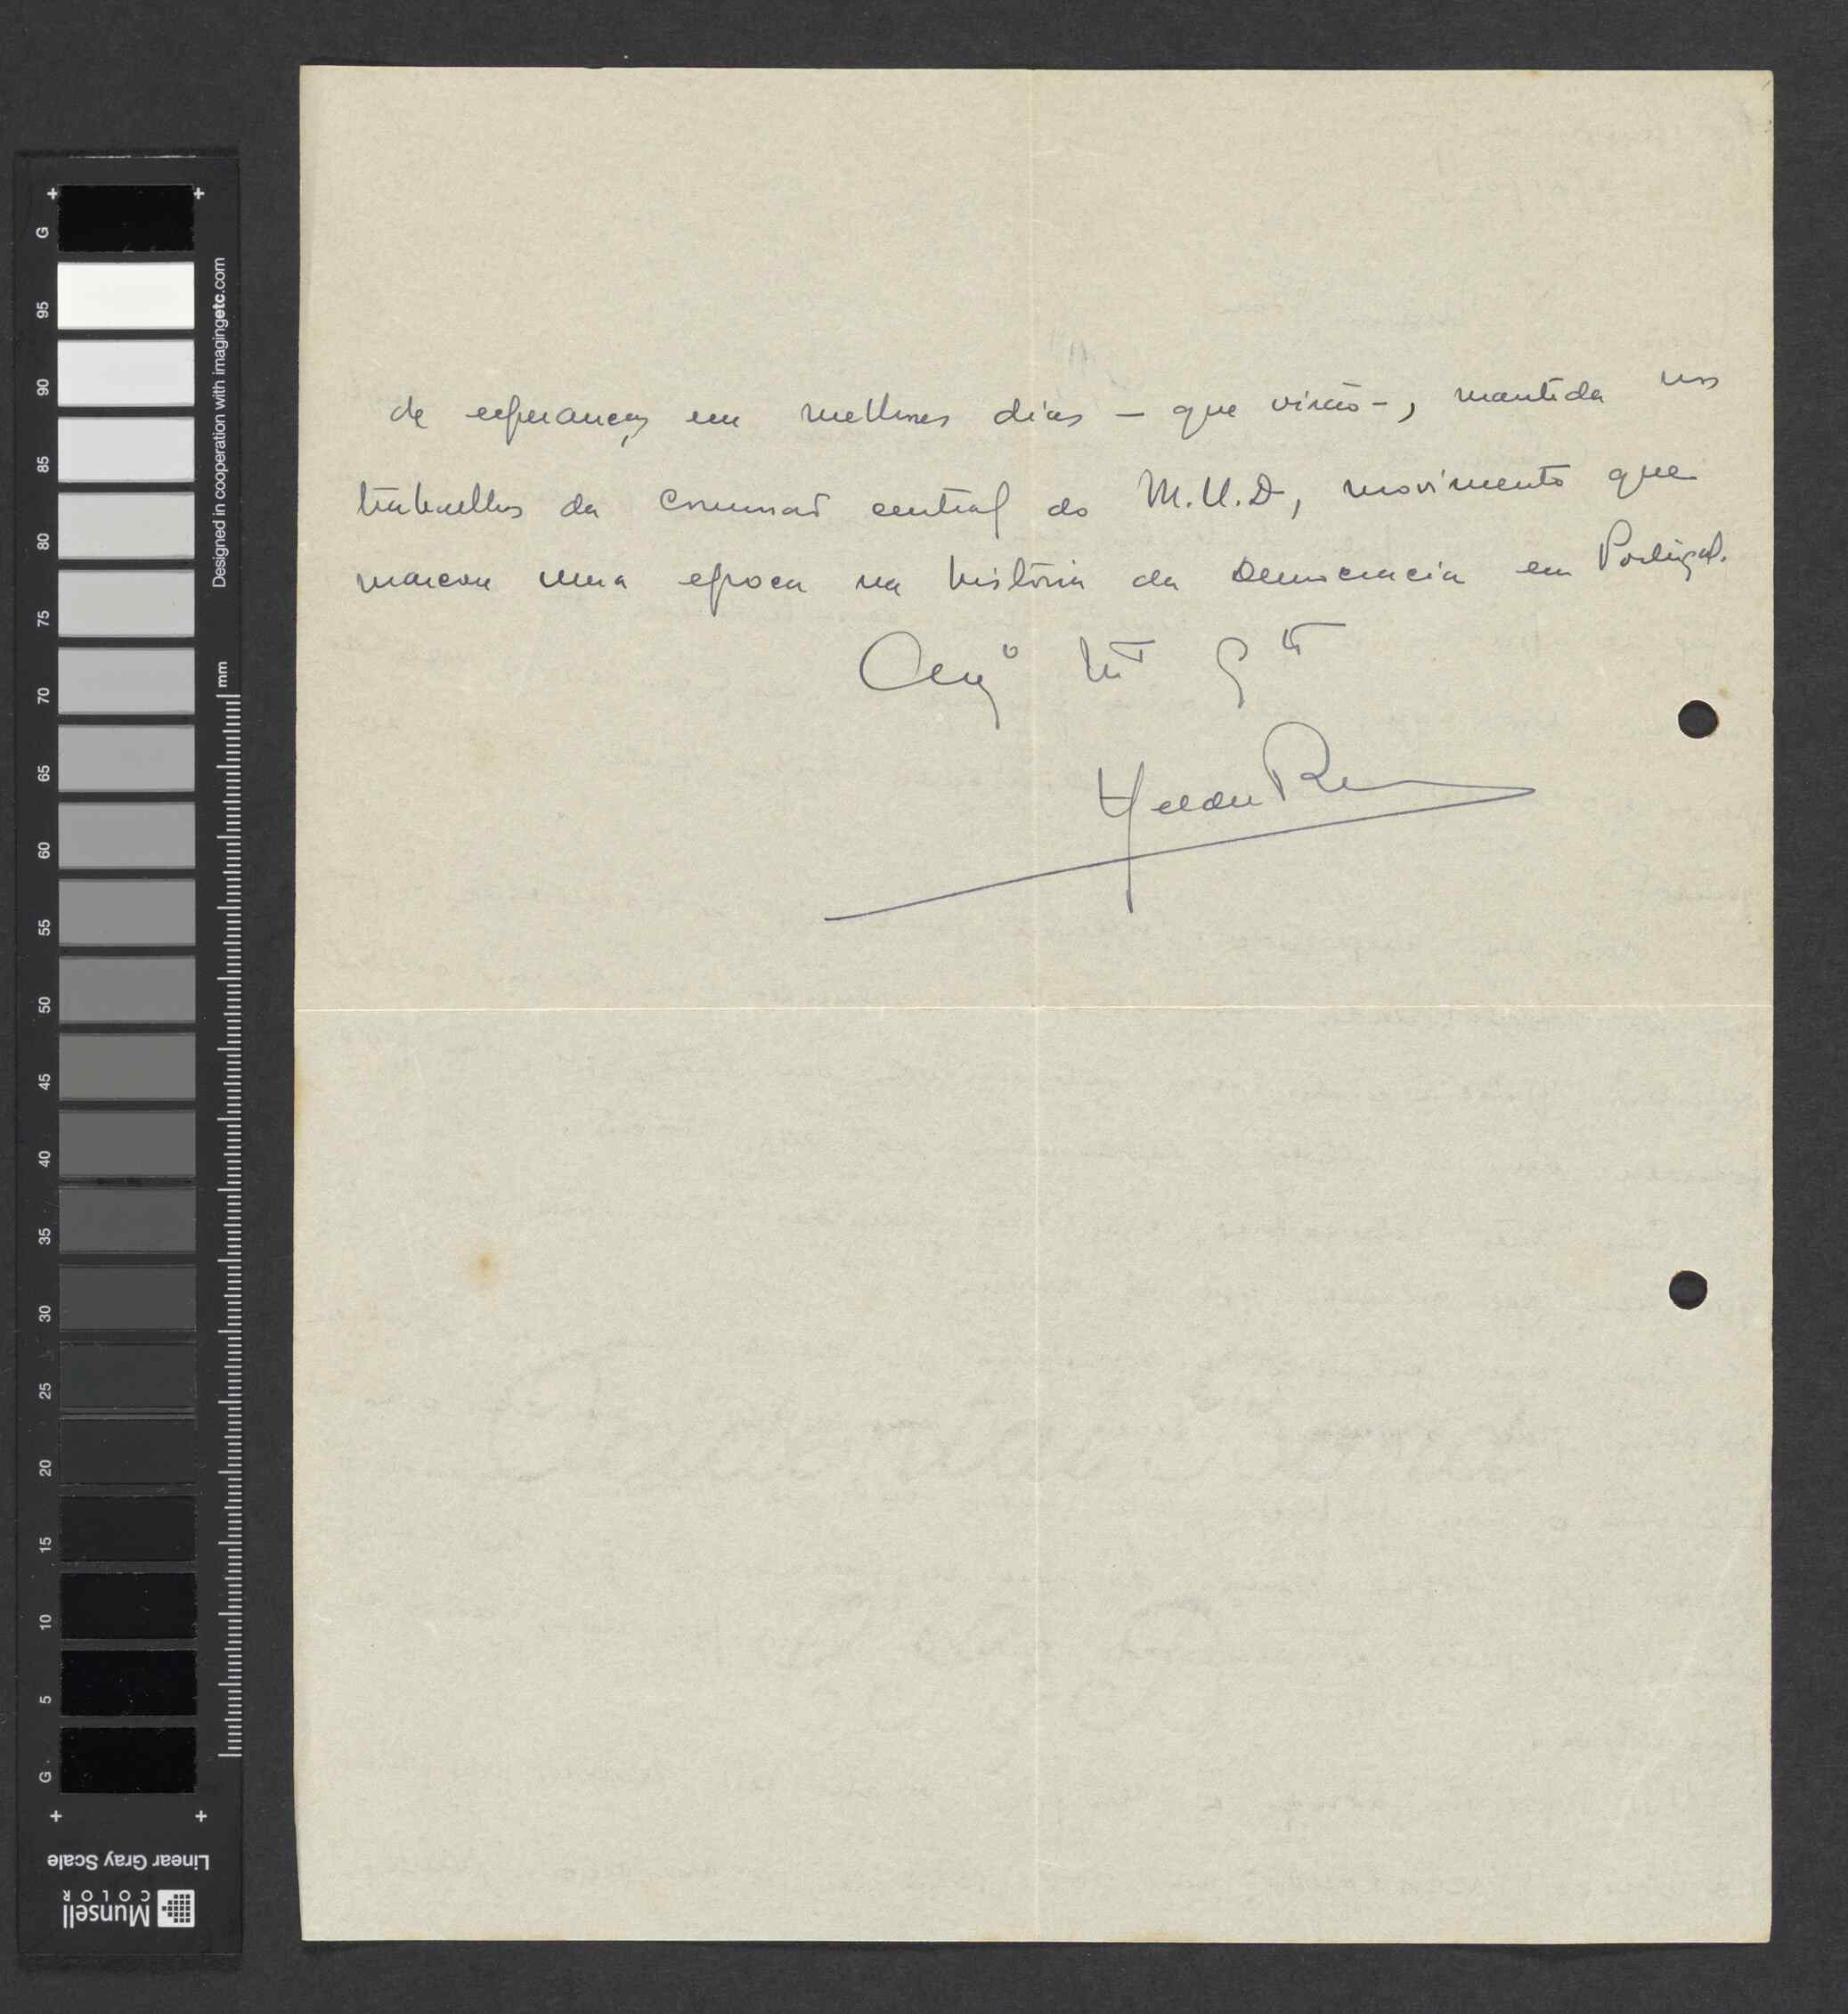 de esperanças em melhores dias – que virão –, mantida nos
trabalhos da comissão central do M.U.D, movimento que
marcou uma epoca na história da Democracia em Portugal.
Amº Mᵗᵒ Gᵗᵒ
Helder R
G
95
90
85
80
75
70
65
60
55
50
45
40
35
30
25
20
15
10
5
G
Designed in cooperation with imagingetc.com
mm
Linear Gray Scale
Munsell
COLOR